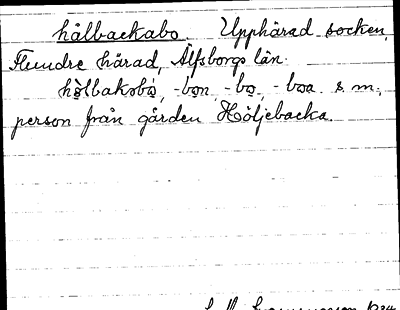 hålbackabo Upphärad socken,
Flundre härad, Älfsborgs län.
hòlbakabò, -bon, -bo, -boa s. m.,
person från gården Höljebacka.